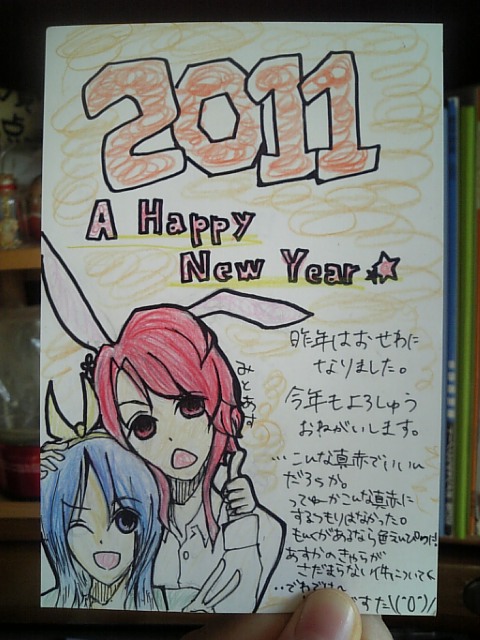 2011
A Happy
New Year
昨年はおせわに
なりました。
みとあす
今年もよろしゅう
おねがいします。
…こんな真赤でいいん
だろうか。
ってゅーかこんな真赤に
するつもりはなかった。
もんくがあるなら色えんぴつに
あすかのきゃらが
さだまらない件について
…でわでわ〜
ですた\(^0^)/